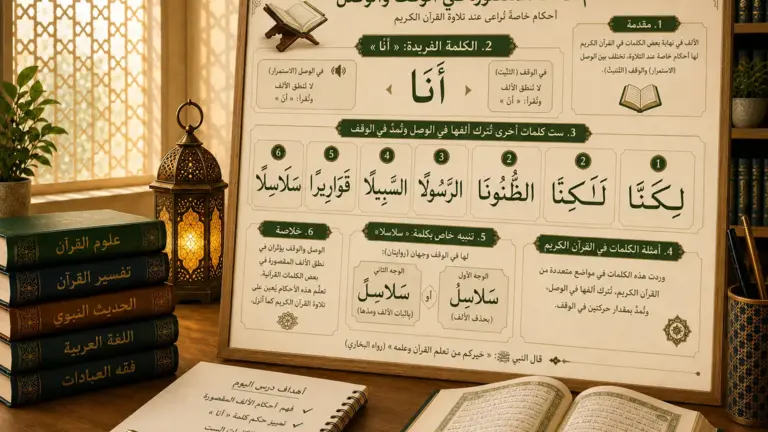 في الوقف والوصل
أحكام خاصة تُراعى عند تلاوة القرآن الكريم
1. مقدمة
الألف في نهاية بعض الكلمات في القرآن الكريم
لها أحكام خاصة عند التلاوة، تختلف بين الوصل
(الاستمرار) والوقف
2. الكلمة الفريدة: « أَنَا »
في الوقف
لا تُنطق الألف
وتُقرأ: « أنَ »
أَنَا
في الوصل (الاستمرار)
لا تُنطق الألف
وتُقرأ: « أنَ »
3. ست كلمات أخرى تُترك ألفها في الوصل وتُمدّ في الوقف
1
لِكَنَّا
2
2
الظُّنُونَا
3
الرَّسُولَا
4
السَّبِيلَا
5
قَوَارِيرَا
6
سَلَاسِلَا
4. أمثلة الكلمات في القرآن الكريم
وردت هذه الكلمات في مواضع متعددة من
القرآن الكريم، تُترك ألفها في الوصل،
وتُمدّ بمقدار حركتين في الوقف.
5. تنبيه خاص بكلمة: « سلاسلا »
لها في الوقف وجهان (روايتان):
الوجه الأول
سَلَاسِلُ
(بحذف الألف)
أو
الوجه الثاني
سَلَاسِلَ
(بإثبات الألف ومدها)
6. خلاصة
الوصل والوقف يؤثران في
نطق الألف المقصورة في
بعض الكلمات القرآنية.
تعلُّم هذه الأحكام يُعين على
تلاوة القرآن الكريم كما أُنزل.
قال النبي ﷺ: « خيركم من تعلم القرآن وعلمه » (رواه البخاري)
علوم القرآن
تفسير القرآن
الحديث النبوي
اللغة العربية
فقه العبادات
أهداف درس اليوم
فهم أحكام الألف المقصورة ✓
تمييز حكم كلمة « أنا » ✓